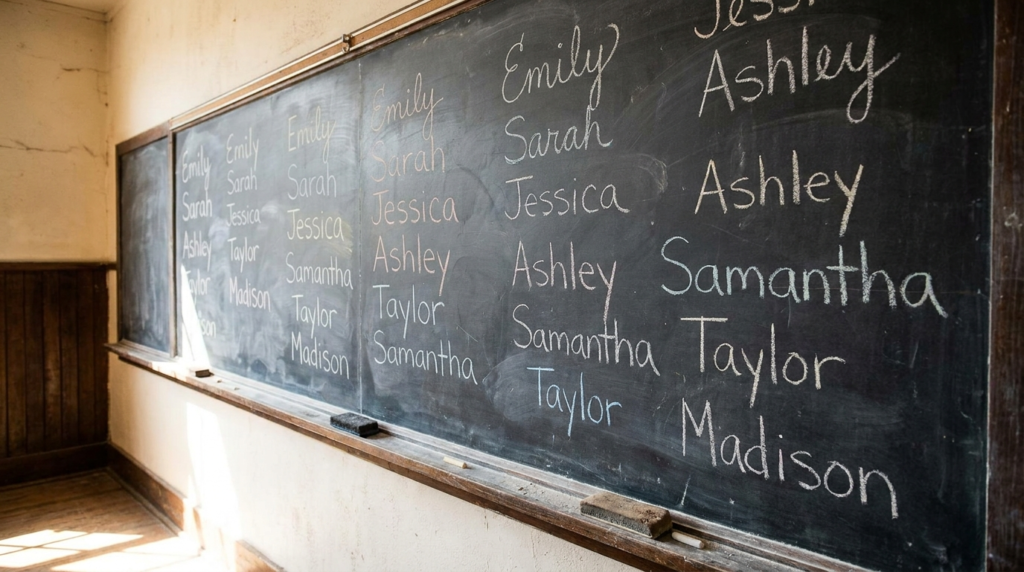 Emily
Sarah
Ashley
Emily
Sarah
Jessica
Taylor
Madison
Emily
Sarah
Jessica
Samantha
Taylor
Madison
Emily
Sarah
Jessica
Ashley
Taylor
Samantha
Emily
Sarah
Jessica
Ashley
Samantha
Taylor
Ashley
Ashley
Samantha
Taylor
Madison